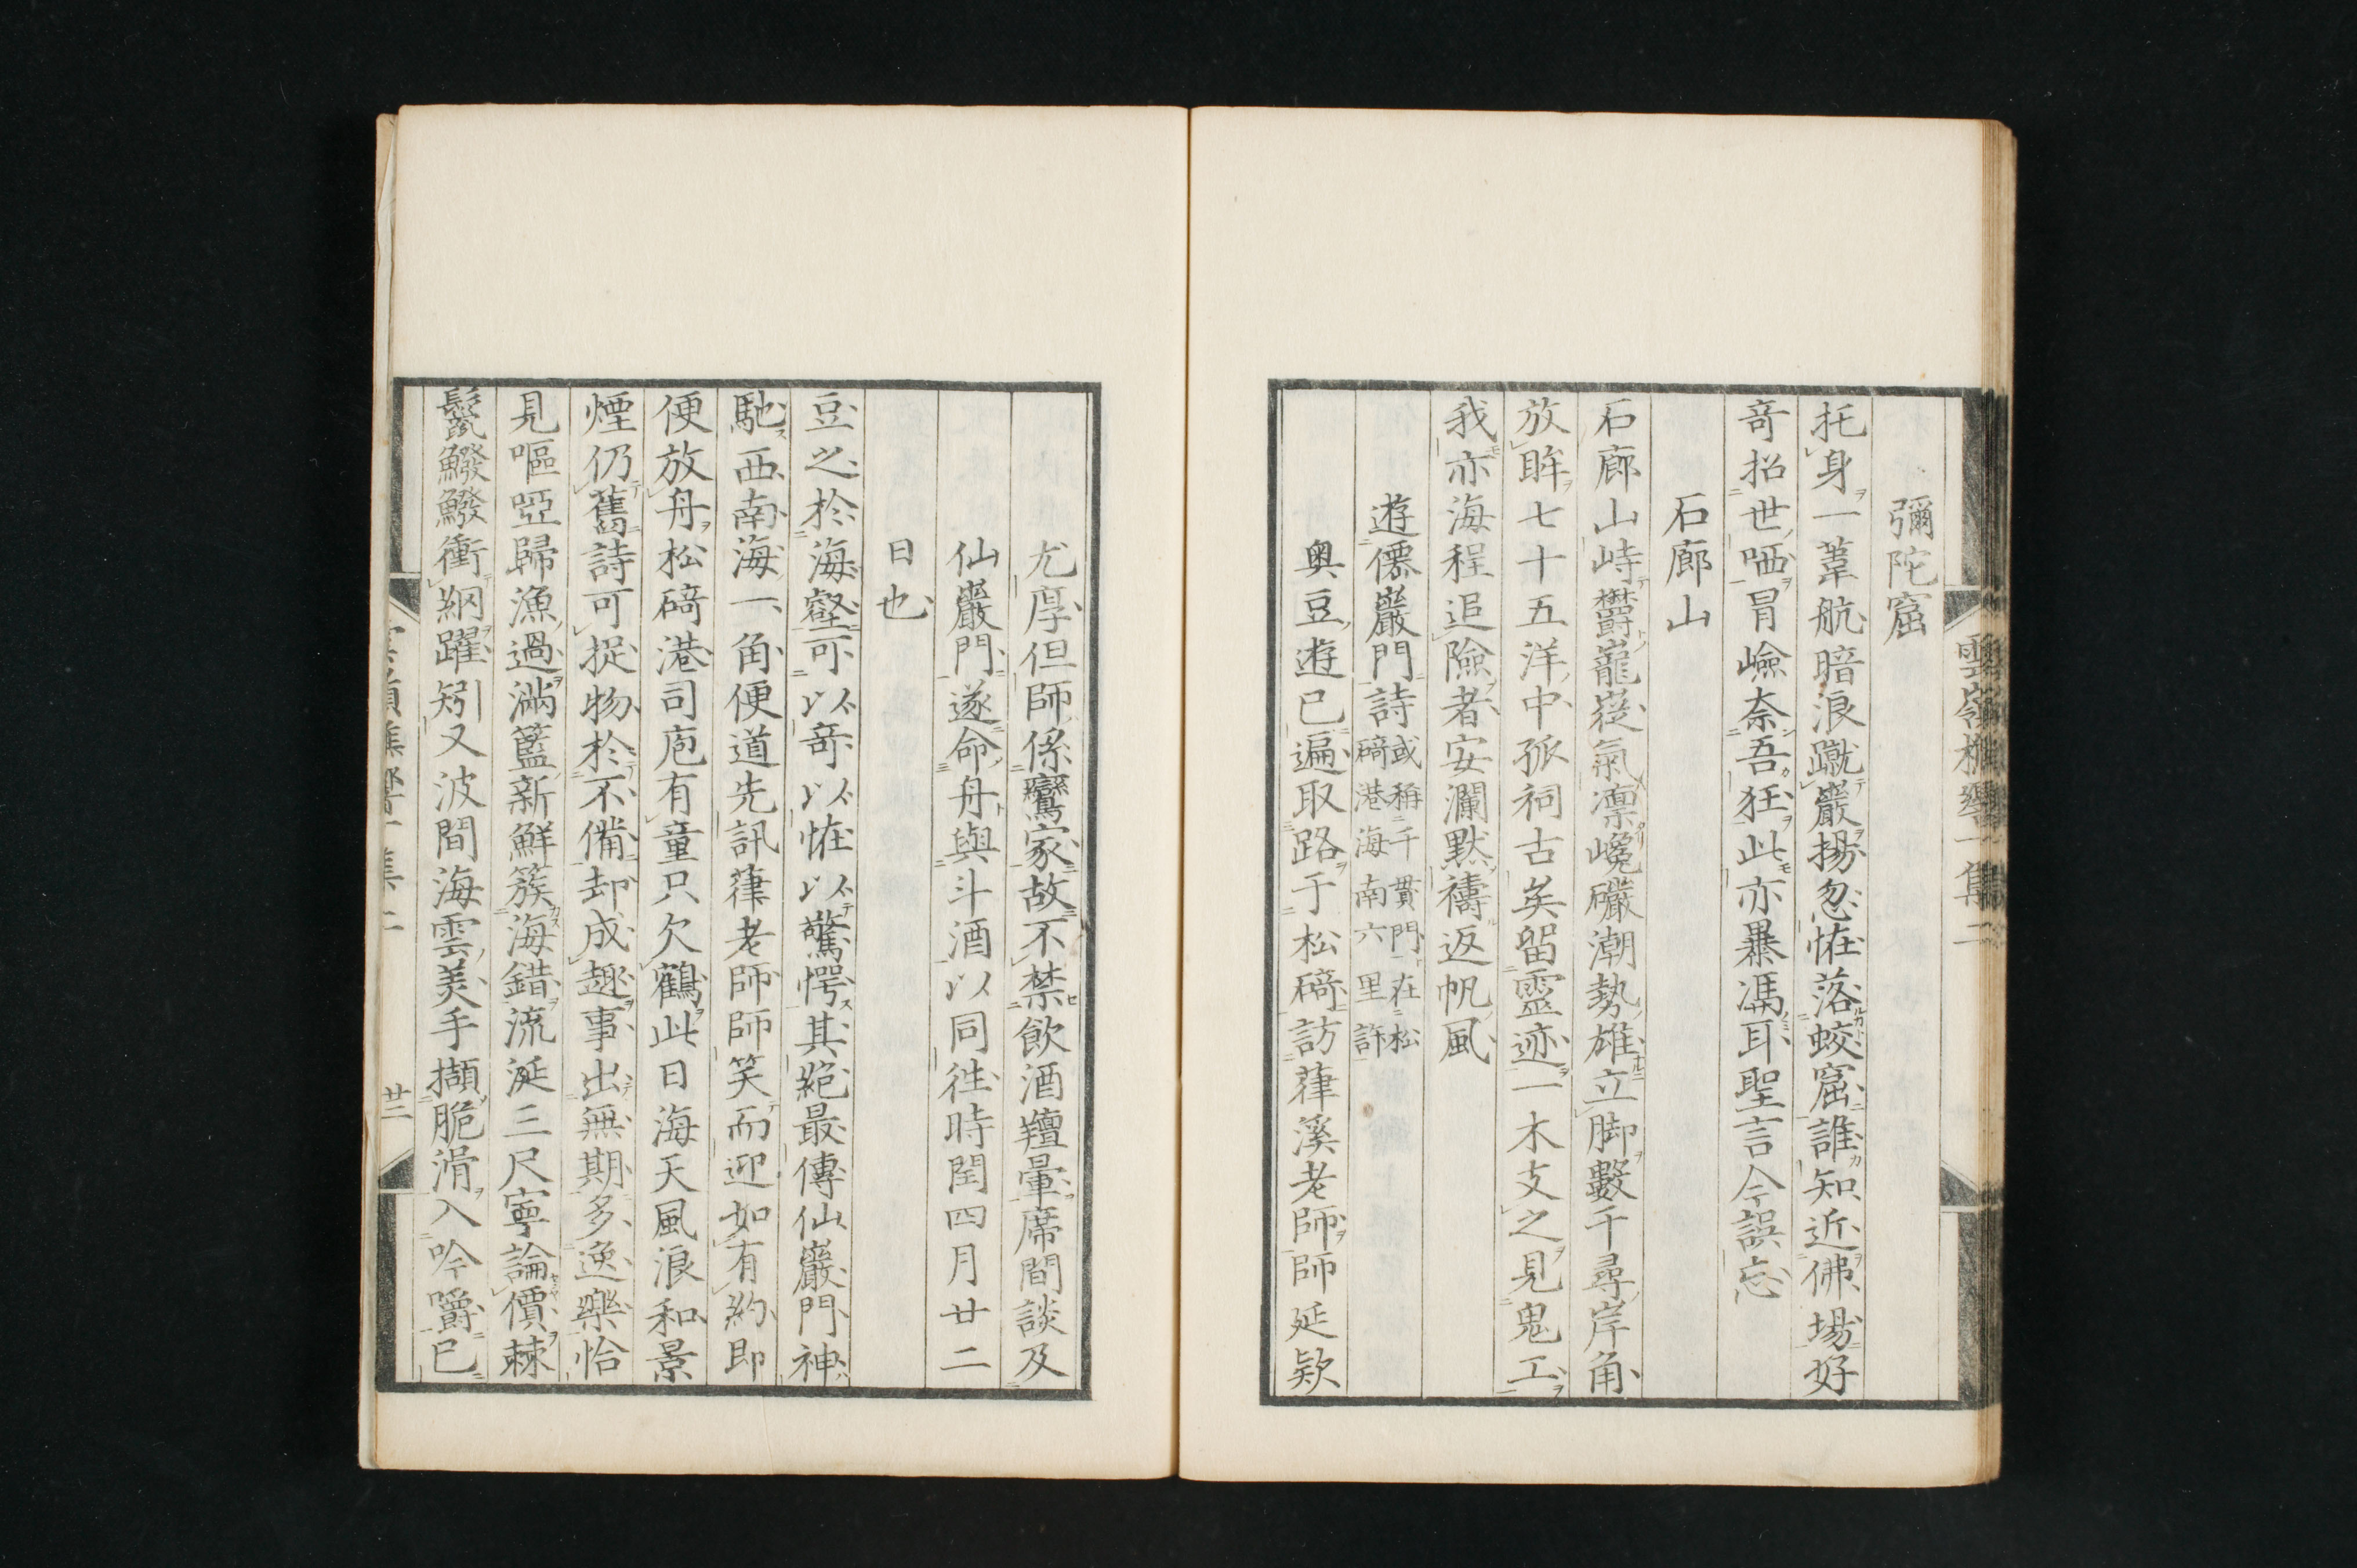 雲嶺樵響一集 二
彌陀窟
托身一葦航暗浪蹴巖揚忽恠落蛟窟誰知近佛場好
竒招世哂冒嶮奈吾狂此亦暴馮耳聖言今誤忘
石廊山
石廊山峙欝巃嵸氣凛巉礹潮勢雄立脚數千尋岸角
放眸七十五洋中孤祠古矣留靈迹一木支之見鬼工
我亦海程追險者安瀾默禱返帆風
遊僊巖門詩
或稱千貫門在松
碕港海南六里許
奥豆遊已遍取路于松碕訪葎溪老師師延欵
尤厚但師係鸞家故不禁飲酒羶葷席間談及
仙巖門遂命舟與斗酒以同徃時閏四月廿二
日也
豆之於海壑可以竒以恠以驚愕其絶最傳仙巖門神
馳西南海一角便道先訊葎老師師笑而迎如有約即
便放舟松碕港司庖有童只欠鶴此日海天風浪和景
煙仍舊詩可捉物於不備却成趣事出無期多逸樂恰
見嘔啞歸漁過滿籃新鮮簇海錯流涎三尺寧論價棘
鬣鱍鱍衝網躍矧又波間海雲美手擷脆滑入吟嚼已
廿二